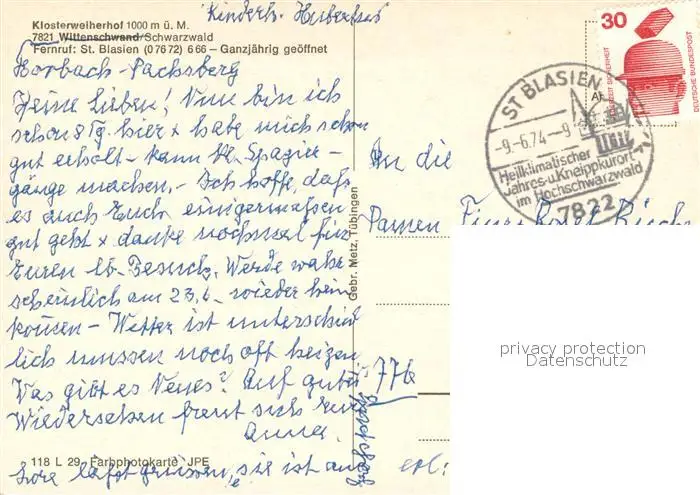 Kinderh. Hubertus
Klosterweiherhof 1000 m ü. M.
7821 Wittenschwand/Schwarzwald
Fernruf: St. Blasien (07672) 666 – Ganzjährig geöffnet
Horbach-
Meine Lieben! Nun bin ich
schon 8 Tg. hier + habe mich schon
gut erholt – kann kl. Spazier-
gänge machen. – Ich hoffe, daß
es auch Euch einigermassen
gut geht + danke nochmal für
Euren lb. Besuch. Werde wahr
scheinlich am 23.6. wieder heim
kommen – Wetter ist unterschied
lich müssen noch oft heizen
Was gibt es Neues? Auf gutes
Wiedersehen freut sich Eure
Anna.
118 L 29 Farbphotokarte JPE
Lore läßt grüssen, sie ist auf
Gebr. Metz, Tübingen
30
DEUTSCHE BUNDESPOST
ST BLASIEN
9.-6.74.-9
Heilklimatischer
Jahres-u.Kneippkurort
im Hochschwarzwald
7822
An die
776
privacy protection
Datenschutz